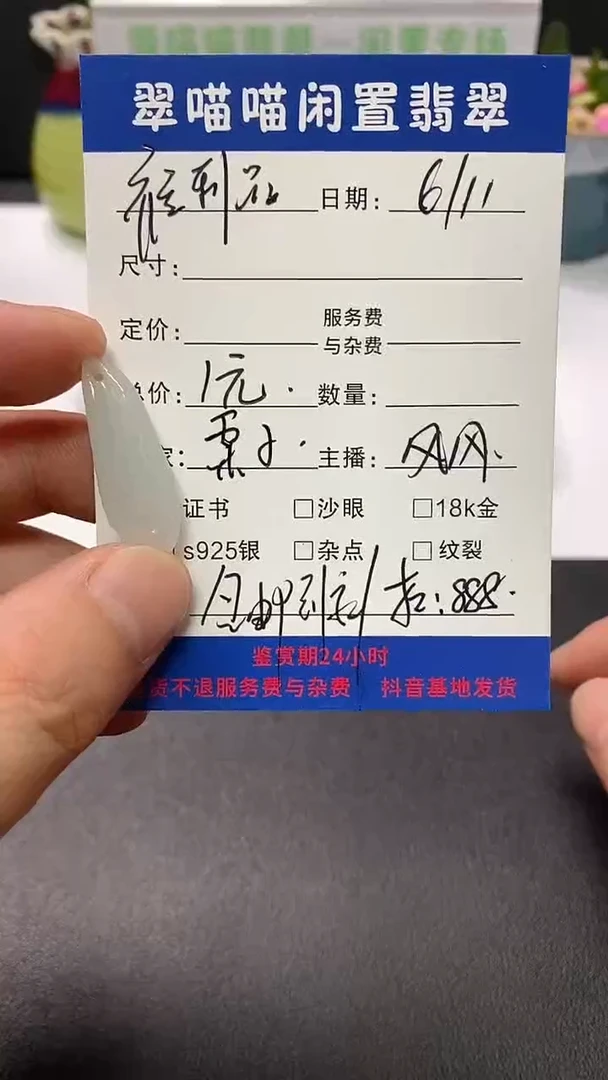 翠喵喵闲置翡翠
福利品 日期: 6/11
尺寸:
定价: 服务费
与杂费
总价: 1元. 数量:
家: 栗子. 主播: 风风.
证书 □沙眼 □18k金
s925银 □杂点 □纹裂
扣: 888.
鉴赏期24小时
货不退服务费与杂费 抖音基地发货